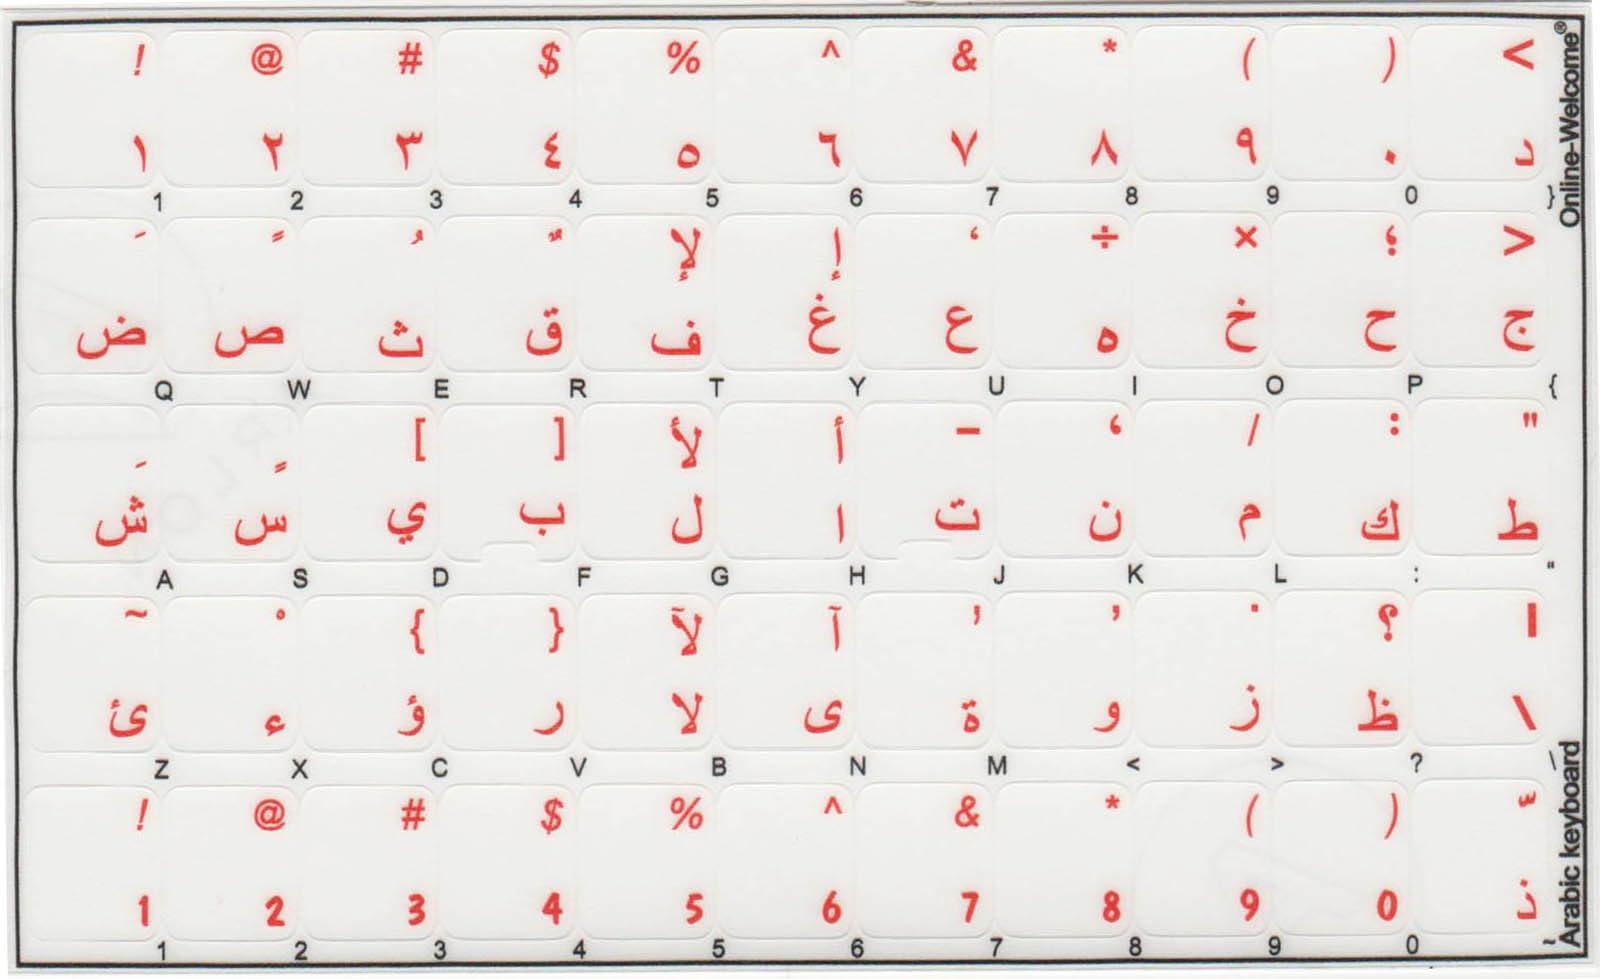 ! @ # $ % ^ & * ( ) <
١ ٢ ٣ ٤ ٥ ٦ ٧ ٨ ٩ ٠ د
1 2 3 4 5 6 7 8 9 0 }
َ ً ُ ٌ لإ إ ‘ ÷ × ؛ >
ض ص ث ق ف غ ع ه خ ح ج
Q W E R T Y U I O P {
ِ ٍ [ ] لأ أ - ، / : "
ش س ي ب ل ا ت ن م ك ط
A S D F G H J K L : "
~ ْ { } لآ آ ' , . ؟ |
ئ ء ؤ ر لا ى ة و ز ظ \
Z X C V B N M < > ? \
! @ # $ % ^ & * ( ) ّ
1 2 3 4 5 6 7 8 9 0 ذ
1 2 3 4 5 6 7 8 9 0 ~
Online-Welcome®
Arabic keyboard